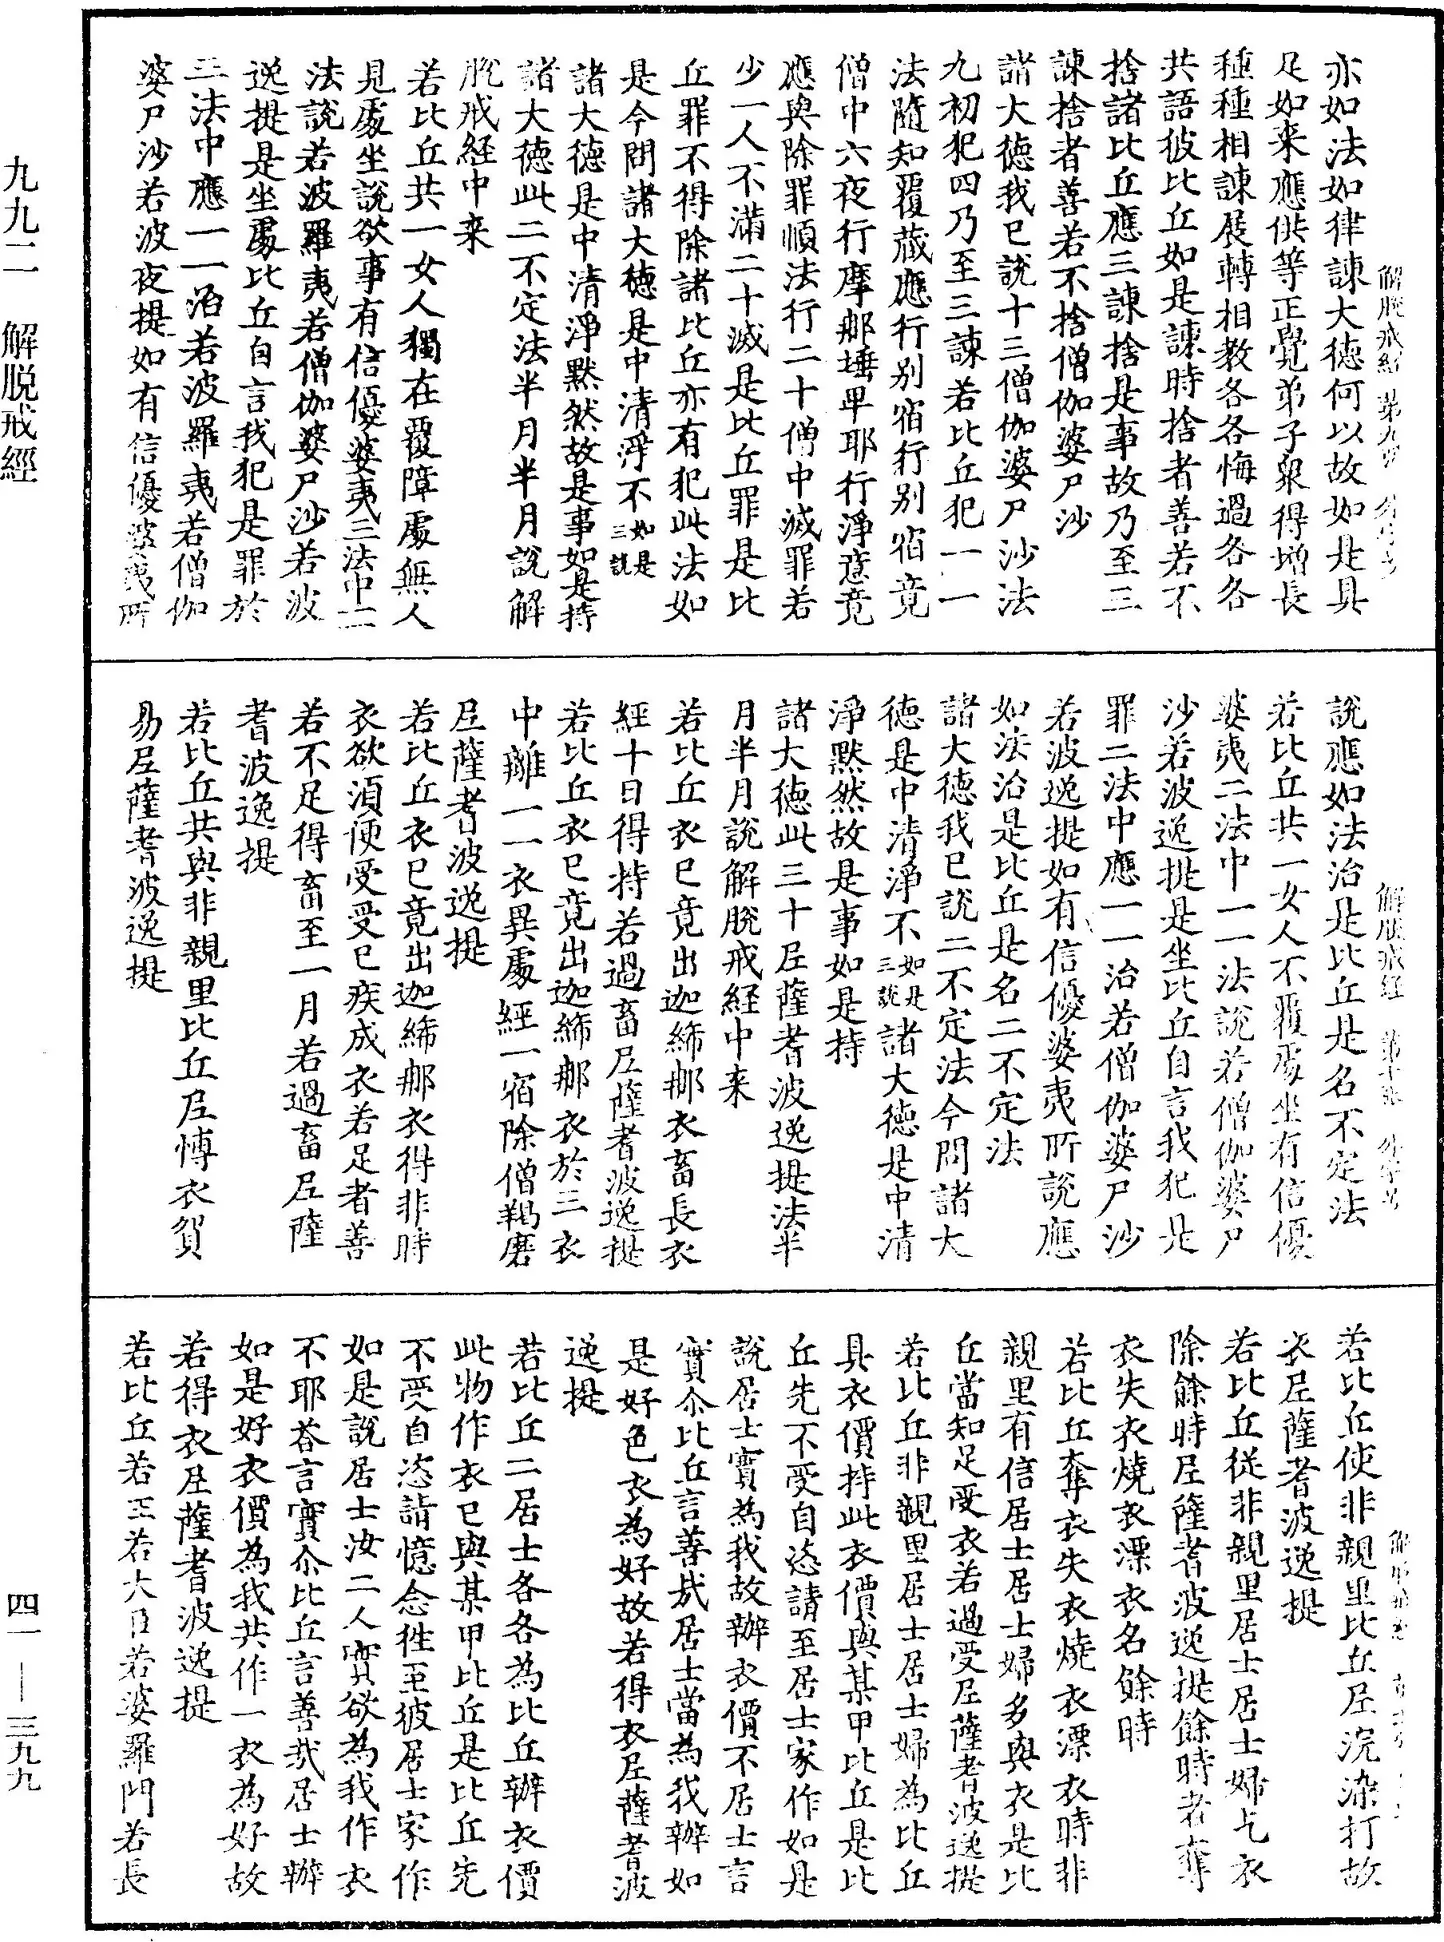 亦如法如律諫大德何以故如是具
足如来應供等正覺弟子衆得增長
種種相諫展轉相教各各悔過各各
共語彼比丘如是諫時捨者善若不
捨諸比丘應三諫捨是事故乃至三
諫捨者善若不捨僧伽婆尸沙
諸大德我已說十三僧伽婆尸沙法
九初犯四乃至三諫若比丘犯一一
法隨知覆藏應行别宿行行别宿竟
僧中六夜行摩那埵卑耶行淨意竟
應與除罪順法行二十僧中滅罪若
少一人不滿二十滅是比丘罪是比
丘罪不得除諸比丘亦有犯此法如
是今問諸大德是中清淨不如是三說
諸大德是中清淨默然故是事如是持
諸大德此二不定法半月半月說解
脫戒経中来
若比丘共一女人獨在覆障處無人
見處坐說欲事有信優婆夷三法中一一
法說若波羅夷若僧伽婆尸沙若波
逸提是坐處比丘自言我犯是罪於
三法中應一一治若波羅夷若僧伽
婆尸沙若波夜提如有信優婆夷所
解脫戒経 第九張
說應如法治是比丘是名不定法
若比丘共一女人不覆處坐有信優
婆夷二法中一一法說若僧伽婆尸
沙若波逸提是坐比丘自言我犯是
罪二法中應一一治若僧伽婆尸沙
若波逸提如有信優婆夷所說應
如法治是比丘是名二不定法
諸大德我已說二不定法今問諸大
德是中清淨不如是三說諸大德是中清
淨默然故是事如是持
諸大德此三十尼薩耆波逸提法半
月半月說解脫戒経中来
若比丘衣已竟出迦絺那衣畜長衣
經十日得持若過畜尼薩耆波逸提
若比丘衣已竟出迦絺那衣於三衣
中離一一衣異處經一宿除僧羯磨
尼薩耆波逸提
若比丘衣已竟出迦絺那衣得非時
衣欲須便受受已疾成衣若足者善
若不足得畜至一月若過畜尼薩
耆波逸提
若比丘共與非親里比丘尼慱衣貿
易尼薩耆波逸提
解脫戒経 第十張
若比丘使非親里比丘尼浣染打故
衣尼薩耆波逸提
若比丘從非親里居士居士婦乞衣
除餘時尼薩耆波逸提餘時者奪
衣失衣燒衣漂衣名餘時
若比丘奪衣失衣燒衣漂衣時非
親里有信居士居士婦多與衣是比
丘當知足受衣若過受尼薩耆波逸提
若比丘非親里居士居士婦為比丘
具衣價持此衣價與某甲比丘是比
丘先不受自恣請至居士家作如是
說居士實為我故辦衣價不居士言
實尒比丘言善㢤居士當為我辦如
是好色衣為好故若得衣尼薩耆波
逸提
若比丘二居士各各為比丘辦衣價
此物作衣已與某甲比丘是比丘先
不受自恣請憶念徃至彼居士家作
如是說居士汝二人實欲為我作衣
不耶荅言實尒比丘言善㢤居士辦
如是好衣價為我共作一衣為好故
若得衣尼薩耆波逸提
若比丘若王若大臣若婆羅門若長
九九二 解脫戒經
四一—三九九